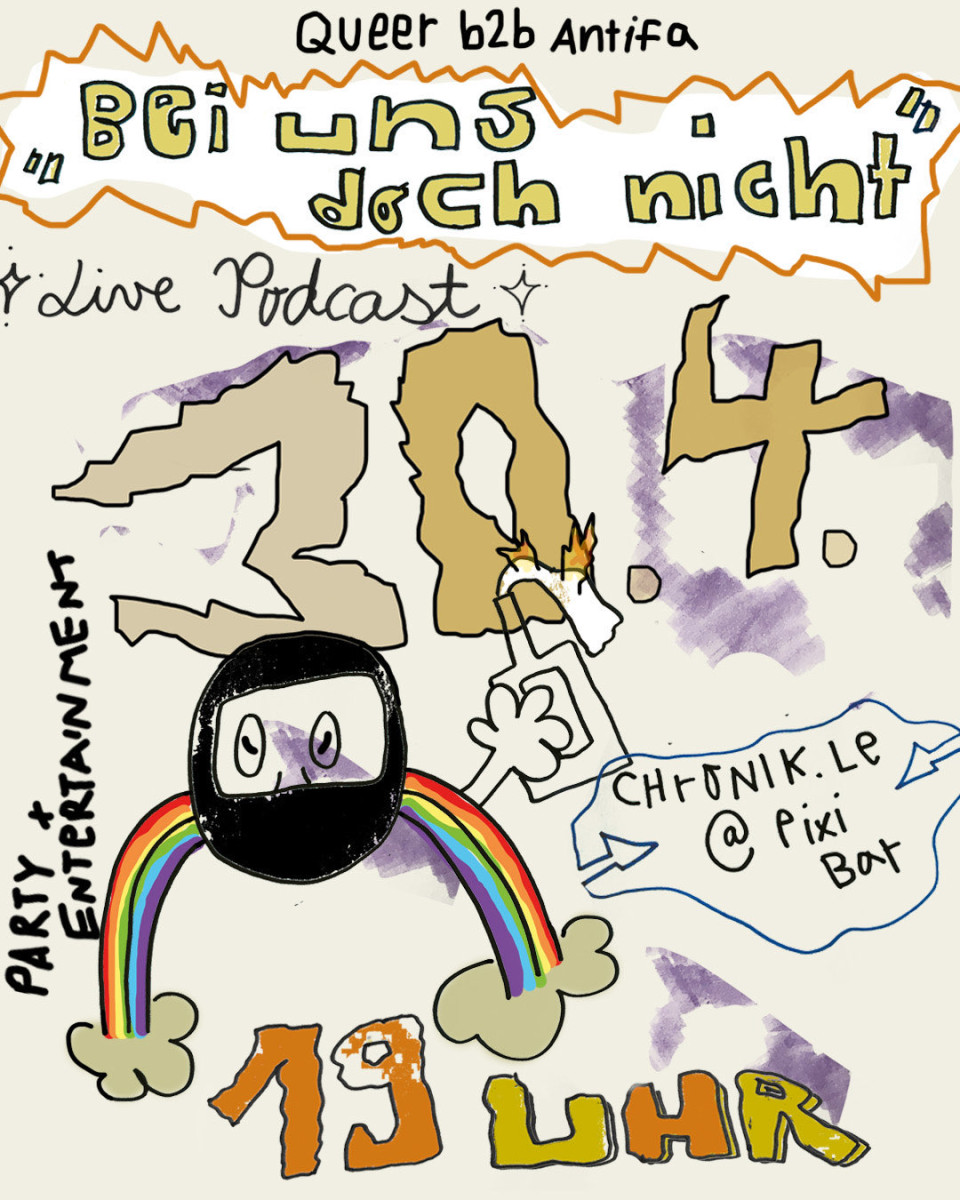 Queer b2b Antifa
"Bei uns
doch nicht"
Live Podcast
30.4.
PARTY +
ENTERTAINMENT
CHrONIK.Le
@ Pixi
Bar
19 UHR